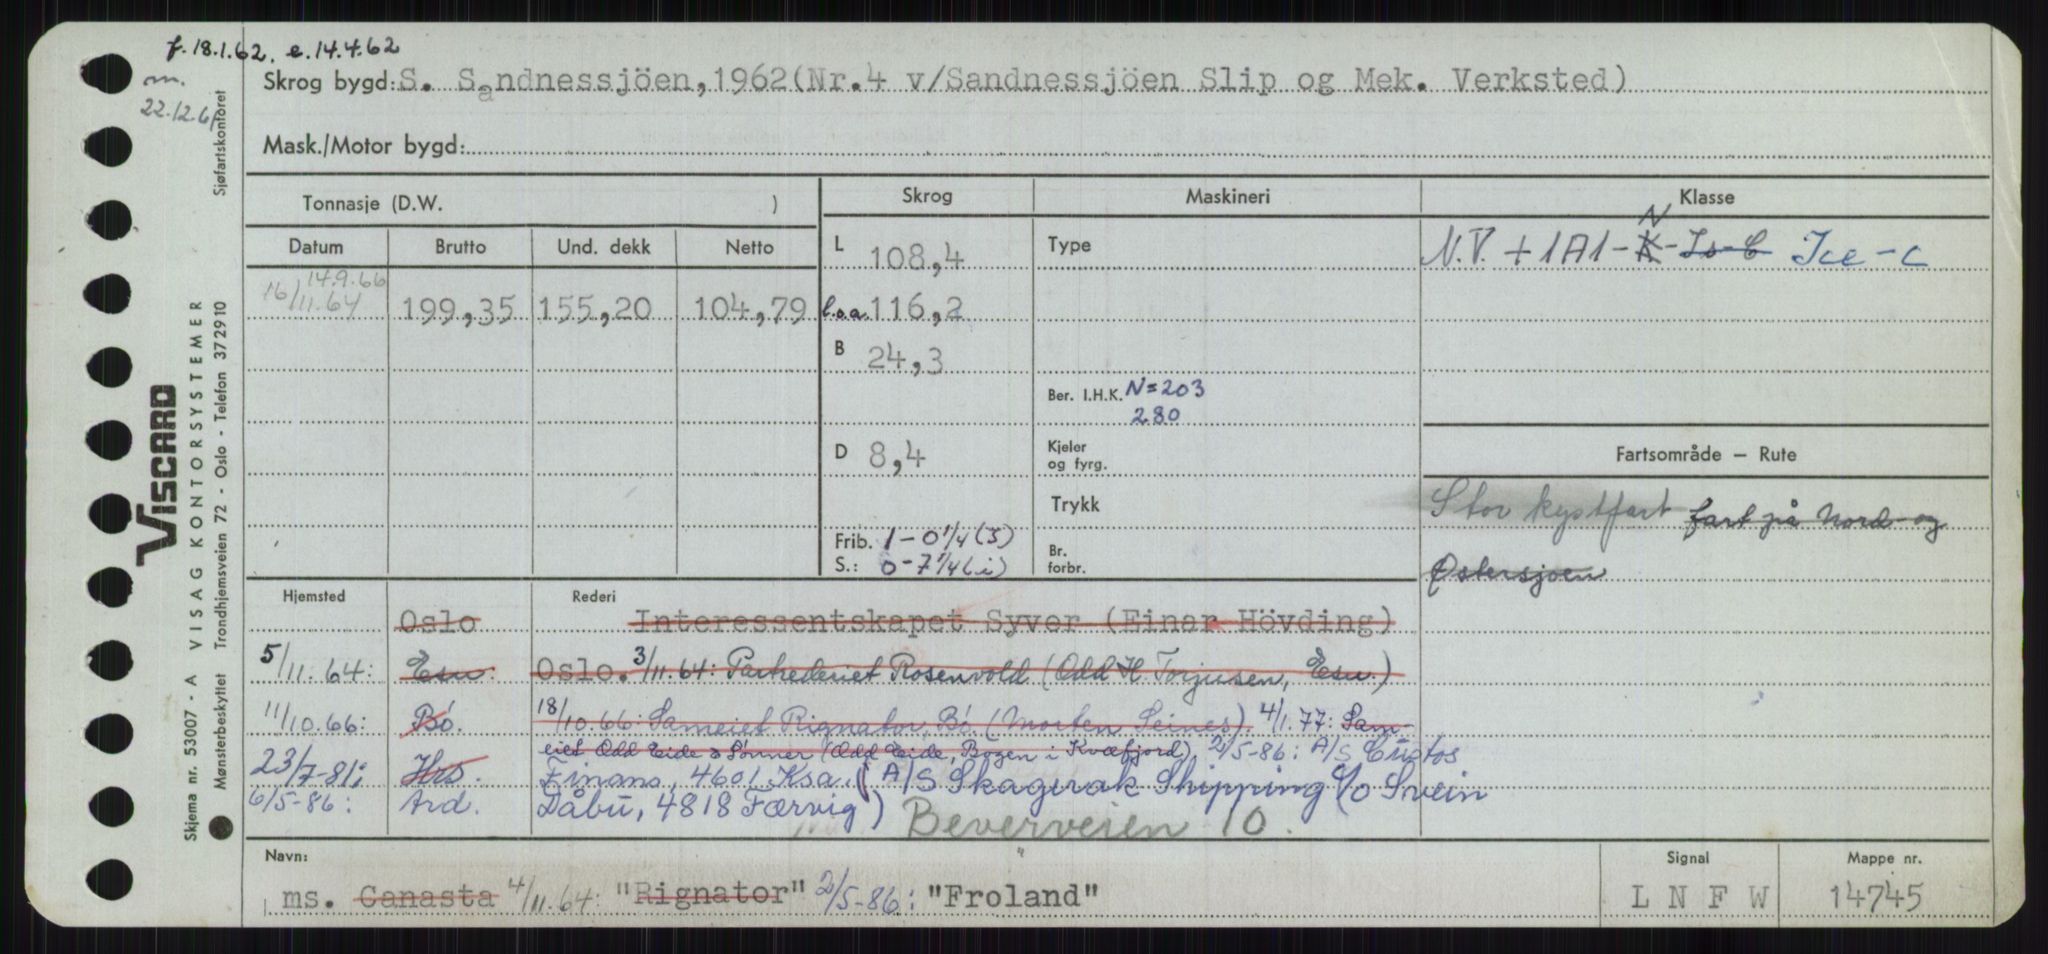 f. 18.1.62. e. 14.4.62
m.
22.12.61
Skrog bygd: S. Sandnessjöen, 1962 (Nr. 4 v/Sandnessjöen Slip og Mek. Verksted)
Mask./Motor bygd:
Tonnasje (D.W. )
Skrog Maskineri Klasse
Datum Brutto Und. dekk Netto
L 108,4 Type N.V. + 1A1-K-Is-C Ice-C
N
14.9.66
16/11.64 199,35 155,20 104,79 l.o.a. 116,2
B 24,3
Ber. I.H.K. N=203
280
D 8,4 Kjeler og fyrg.
Fartsområde – Rute
Trykk
Stor kystfart fart på Nord- og
Østersjøen
Frib. 1-0 1/4 (S)
S.: 0-7 1/4 (i)
Br. forbr.
Hjemsted Rederi
Oslo Interessentskapet Syver (Einar Hövding)
5/11.64: Esu. Oslo. 3/11.64: Partrederiet Rosenvold (Odd H. Torjusen, Esu.)
11/10.66: Bö. 18/10.66: Sameiet Rignator, Bö. (Morten Seines). 4/1.77: Sam-
eiet Odd Eide & Sønner (Odd Eide, Bogen i Kvæfjord), 2/5-86: A/S Custos
23/7-81: Hrs. Finans, 4601 Ksa. (A/S Skagerak Shipping c/o Svein
6/5-86: Ard. Dåbu, 4818 Færvig) Beverveien 10.
Navn: Signal Mappe nr.
ms. Canasta 4/11.64: "Rignator" 2/5-86: "Froland" L N F W 14745
VISCARD
VISAG KONTORSYSTEMER
Skjema nr. 53007 - A
Mønsterbeskyttet Trondhjemsveien 72 - Oslo - Telefon 372910
Sjøfartskontoret